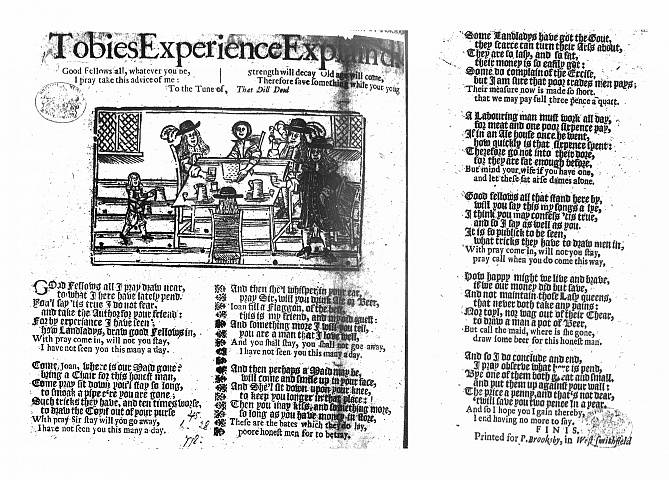 Tobies Experience Explained
Good Fellows all, whatever you be,
I pray take this advice of me:
Strength will decay Old age will come,
Therefore save something while your young
To the Tune of, That Dill Doul
GOod Fellows all I pray draw near,
to what I here have lately pend.
You'l say 'tis true I do not fear,
and take the Author for your friend:
For by experience I have seen
how Landladys, draw good Fellows in,
With pray come in, will not you stay,
I have not seen you this many a day.
Come, Joan, where is our Maid gone?
bring a Chair for this honest man,
Come pray sit down you'l stay so long,
to smoak a pipe e're you are gone;
Such tricks they have, and ten times worse,
to draw the Coyn out of your purse
With pray Sir stay will you go away,
I have not seen you this many a day.
And then she'l whisper in your ear,
pray Sir, will you drink Ale or Beer,
Joan fill a Flaggon of the best,
this is my friend, and my old guest;
And something more I will you tell,
you are a man that I love well,
And you shall stay, you shall not goe away,
I have not seen you this many a day.
And then perhaps a Maid may be,
will come and smile up in your face,
And She'l sit down upon your knee,
to keep you longer in that place:
Then you may kiss, and something more,
so long as you have money in store,
These are the baits which they do lay,
poore honest men for to betray.
Some Landladys have got the Gout,
they scarce can turn their Arses about,
They are so lasy, and so fat,
their money is so easily got:
Some do complain of the Excise,
but I am sure that poor trades men pays;
Their measure now is made so short,
that we may pay full three pence a quart.
A Labouring man must work all day,
for meat and one poor sixpence pay,
If in an Ale house once he went,
how quickly is that sixpence spent:
Therefore go not into their dore,
for they are fat enough before,
But mind your wife if you have one,
and let these fat arse dames alone.
Good fellows all that stand here by,
will you say this my songs a lye,
I think you may confess 'tis true,
and so I say as well as you.
It is so publick to be seen,
what tricks they have to draw men in,
With pray come in, will not you stay,
pray call when you do come this way,
How happy might we live and brave,
if we our money did but save,
And not maintain those Lasy queens,
that never doth take any pains:
Nor toyl, nor wag out of their Chear,
to draw a man a pot of Beer,
But call the maid, where is she gone,
draw some beer for this honest man.
And so I do conclude and end,
I pray observe what here is pend,
Bye one of them both great and small,
and put them up against your wall:
The price a penny, and that's not dear,
'twill save you two pence in a year.
And so I hope you I gain thereby,
I end having no more to say.
FINIS.
Printed for P. Brooksby, in West smithfield